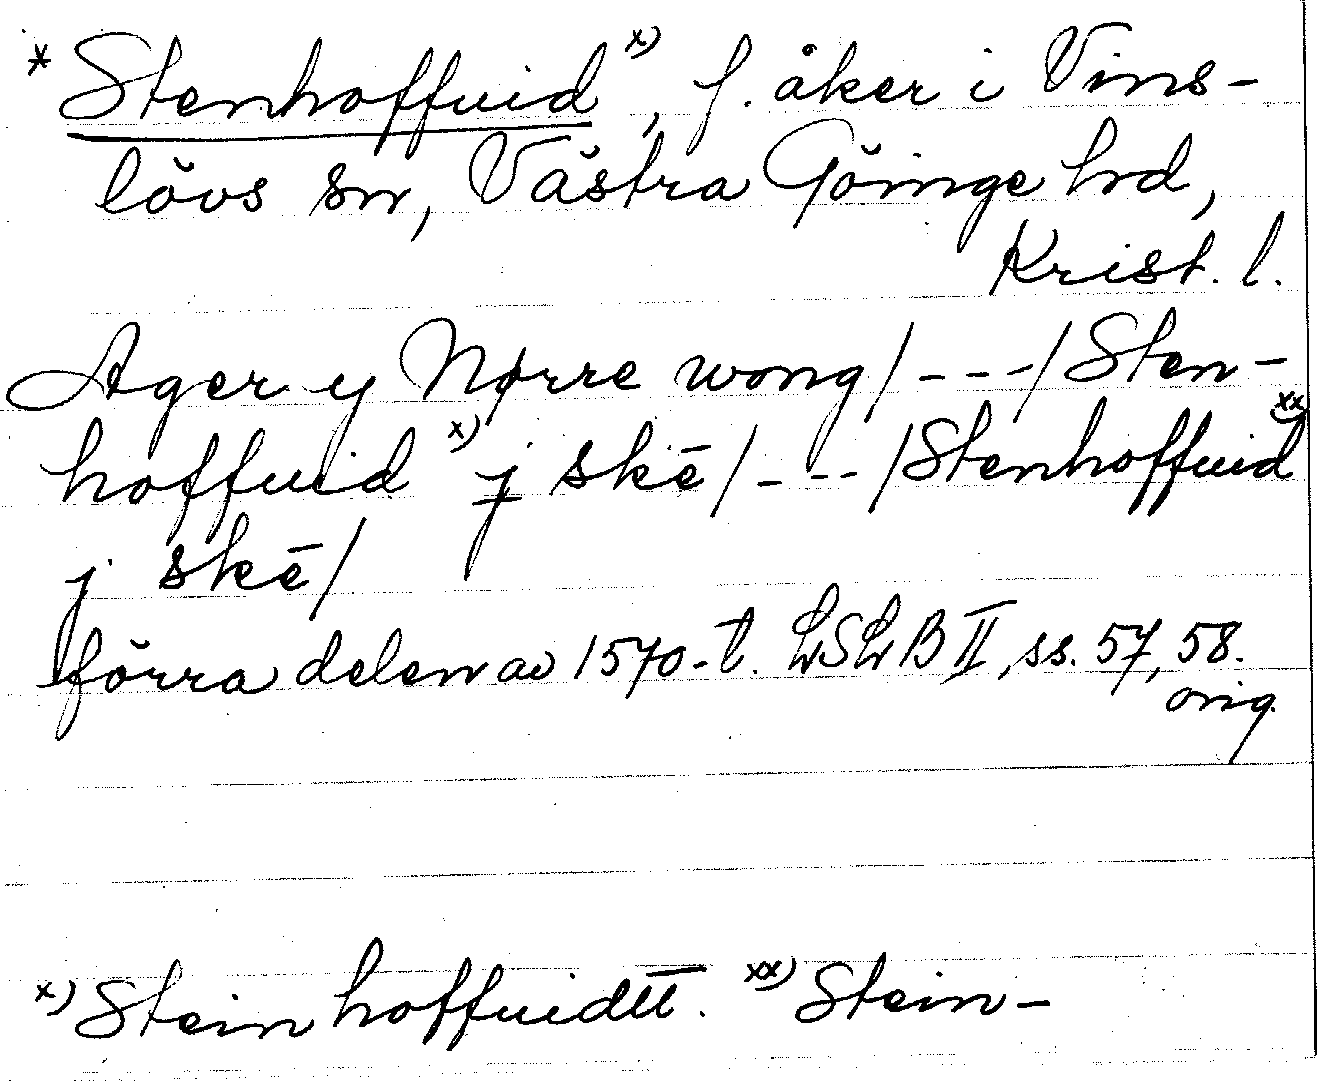 * Stenhoffuid x), f. åker i Vins-
lövs sn, Västra Göinge hrd,
Krist. l.
Ager y Nørre wong/---/Sten-
hoffuid x) j skē/---/Stenhoffuid xx)
j skē/
förra delen av 1570-t. LSLB II, ss. 57, 58.
orig.
x) Stein hoffuidtt. xx) Stein-